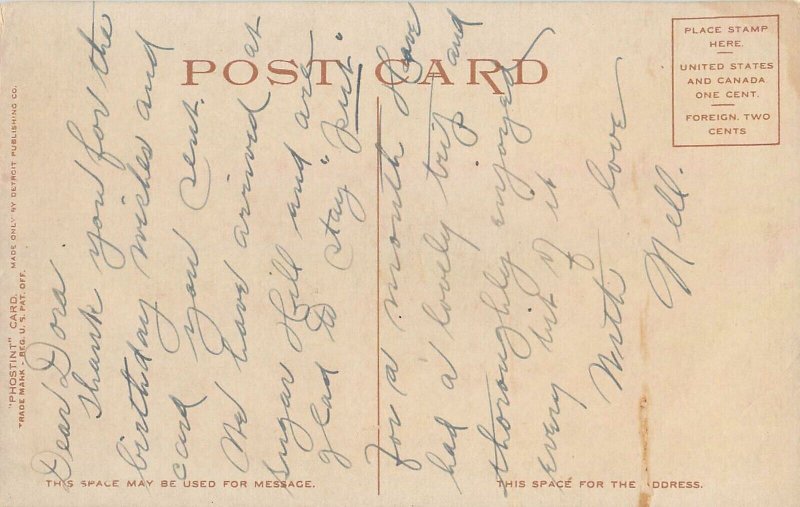 POST CARD
PLACE STAMP
HERE.
UNITED STATES
AND CANADA
ONE CENT.
FOREIGN, TWO
CENTS
"PHOSTINT" CARD, MADE ONLY BY DETROIT PUBLISHING CO.
TRADE MARK - REG. U. S. PAT. OFF.
Dear Dora.
Thank you for the
birthday wishes and
card you sent.
We have arrived at
Sugar Hill and are
glad to stay "put"
for a month. Have
had a lovely trip and
thoroughly enjoyed
every bit of it
With love
Nell.
THIS SPACE MAY BE USED FOR MESSAGE.
THIS SPACE FOR THE ADDRESS.